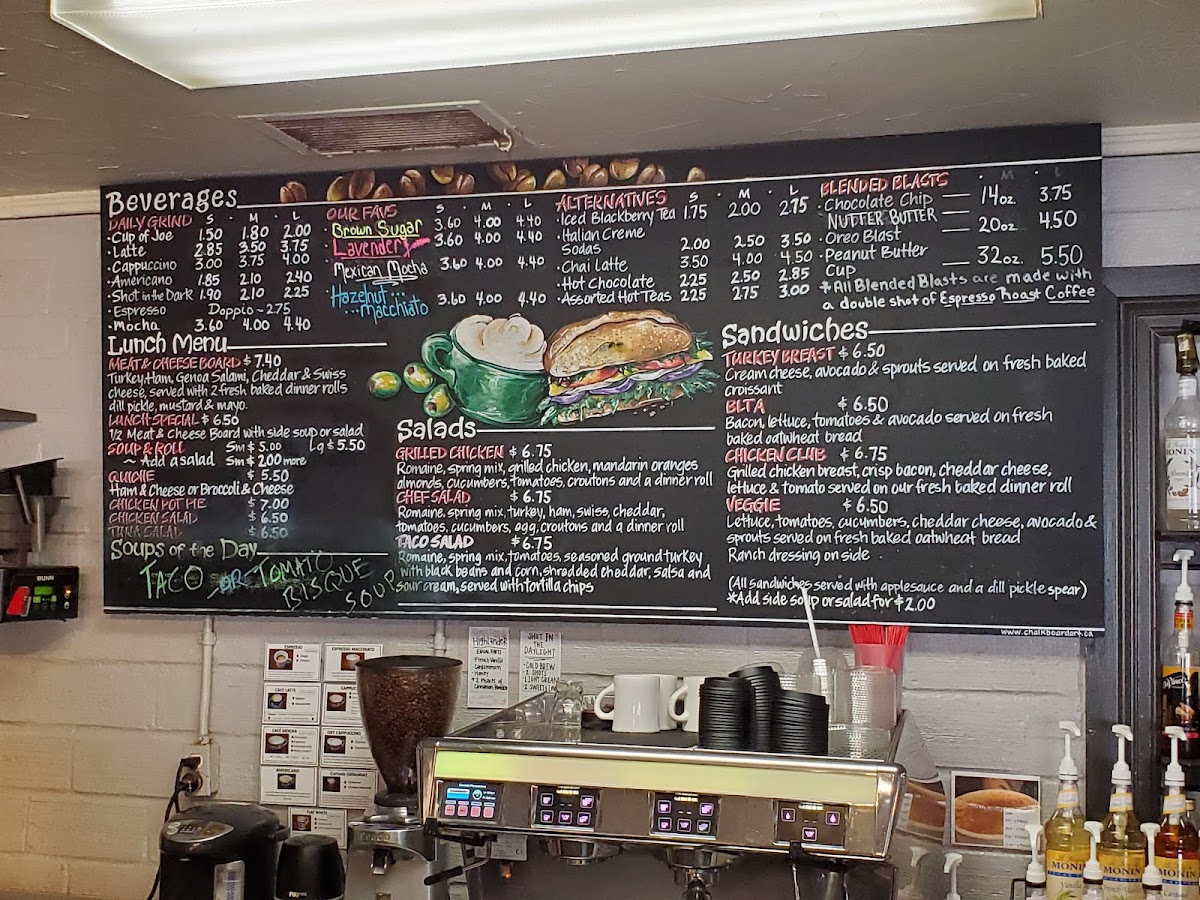 Beverages
DAILY GRIND S · M · L
· Cup of Joe 1.50 1.80 2.00
· Latte 2.85 3.50 3.75
· Cappuccino 3.00 3.75 4.00
· Americano 1.85 2.10 2.40
· Shot in the Dark 1.90 2.10 2.25
· Espresso Doppio ~ 2.75
· Mocha 3.60 4.00 4.40
OUR FAVS S · M · L
· Brown Sugar 3.60 4.00 4.40
Lavender 3.60 4.00 4.40
Mexican Mocha 3.60 4.00 4.40
· Hazelnut ...
...macchiato 3.60 4.00 4.40
ALTERNATIVES S · M · L
· Iced Blackberry Tea 1.75 2.00 2.75
· Italian Creme
Sodas 2.00 2.50 3.50
· Chai Latte 3.50 4.00 4.50
· Hot Chocolate 2.25 2.50 2.85
· Assorted Hot Teas 2.25 2.75 3.00
BLENDED BLASTS · M · L
· Chocolate Chip — 14oz 3.75
NUTTER BUTTER — 20oz 4.50
· Oreo Blast
· Peanut Butter
Cup — 32oz. 5.50
* All Blended Blasts are made with
a double shot of Espresso Roast Coffee
Lunch Menu
MEAT & CHEESE BOARD $ 7.40
Turkey, Ham, Genoa Salami, Cheddar & Swiss
cheese, served with 2 fresh baked dinner rolls
dill pickle, mustard & mayo.
LUNCH SPECIAL $ 6.50
1/2 Meat & Cheese Board with side soup or salad
SOUP & ROLL Sm $ 5.00 Lg $ 5.50
~ Add a salad Sm $ 2.00 more
QUICHE $ 5.50
Ham & Cheese or Broccoli & Cheese
CHICKEN POT PIE $ 7.00
CHICKEN SALAD $ 6.50
TUNA SALAD $ 6.50
Soups of the Day
TACO OR TOMATO
BISQUE
SOUP
Salads
GRILLED CHICKEN $ 6.75
Romaine, spring mix, grilled chicken, mandarin oranges
almonds, cucumbers, tomatoes, croutons and a dinner roll
CHEF SALAD $ 6.75
Romaine, spring mix, turkey, ham, swiss, cheddar,
tomatoes, cucumbers, egg, croutons and a dinner roll
TACO SALAD $ 6.75
Romaine, spring mix, tomatoes, seasoned ground turkey
with black beans and corn, shredded cheddar, salsa and
sour cream, served with tortilla chips
Sandwiches
TURKEY BREAST $ 6.50
Cream cheese, avocado & sprouts served on fresh baked
croissant
BLTA $ 6.50
Bacon, lettuce, tomatoes & avocado served on fresh
baked oatwheat bread
CHICKEN CLUB $ 6.75
Grilled chicken breast, crisp bacon, cheddar cheese,
lettuce & tomato served on our fresh baked dinner roll
VEGGIE $ 6.50
Lettuce, tomatoes, cucumbers, cheddar cheese, avocado &
sprouts served on fresh baked oatwheat bread
Ranch dressing on side .
(All sandwiches served with applesauce and a dill pickle spear)
* Add side soup or salad for $2.00
www.chalkboardart.ca
Highlander
EQUAL PARTS
· French Vanilla
· Cardamomm
· Honey
SHOT IN
THE
DAYLIGHT
· COLD BREW
· 2 SHOTS
ESPRESSO
ESPRESSO MACCHIATO
CAFÉ LATTE
CAFÉ MOCHA
DRY CAPPUCCINO
AMERICANO
FLAT WHITE
BUNN
MONIN
MONIN
MONIN
MONIN
Vanilla
French Vanilla
Caramel